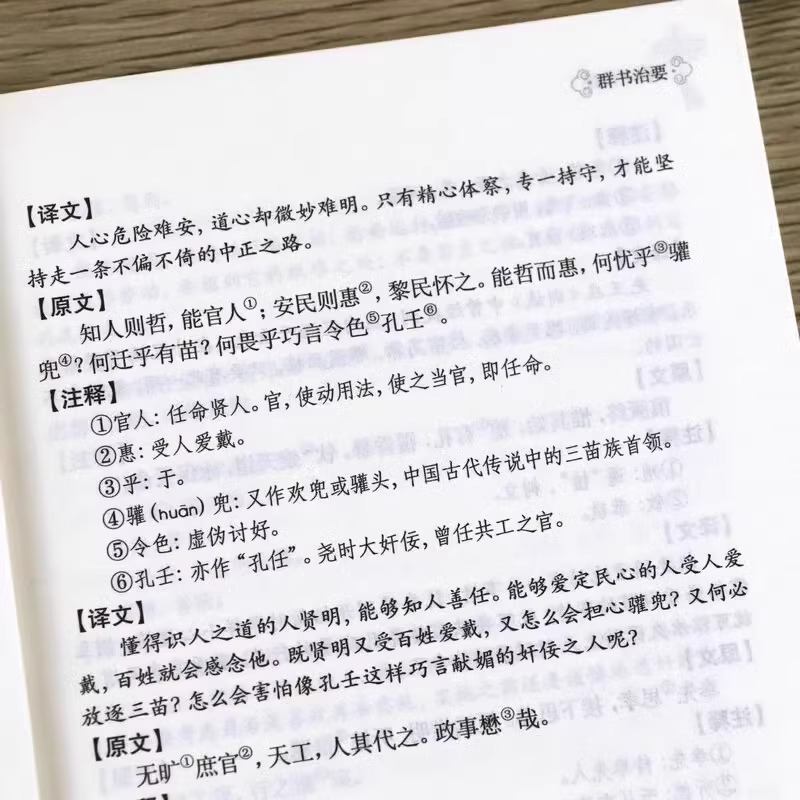 群书治要
【译文】
人心危险难安，道心却微妙难明。只有精心体察，专一持守，才能坚
持走一条不偏不倚的中正之路。
【原文】
知人则哲，能官人①；安民则惠②，黎民怀之。能哲而惠，何忧乎③驩
兜④？何迁乎有苗？何畏乎巧言令色⑤孔壬⑥。
【注释】
①官人：任命贤人。官，使动用法，使之当官，即任命。
②惠：受人爱戴。
③乎：于。
④驩（huān）兜：又作欢兜或驩头，中国古代传说中的三苗族首领。
⑤令色：虚伪讨好。
⑥孔壬：亦作“孔任”。尧时大奸佞，曾任共工之官。
【译文】
懂得识人之道的人贤明，能够知人善任。能够爱定民心的人受人爱
戴，百姓就会感念他。既贤明又受百姓爱戴，又怎么会担心驩兜？又何必
放逐三苗？怎么会害怕像孔壬这样巧言献媚的奸佞之人呢？
【原文】
无旷①庶官②，天工，人其代之。政事懋③哉。